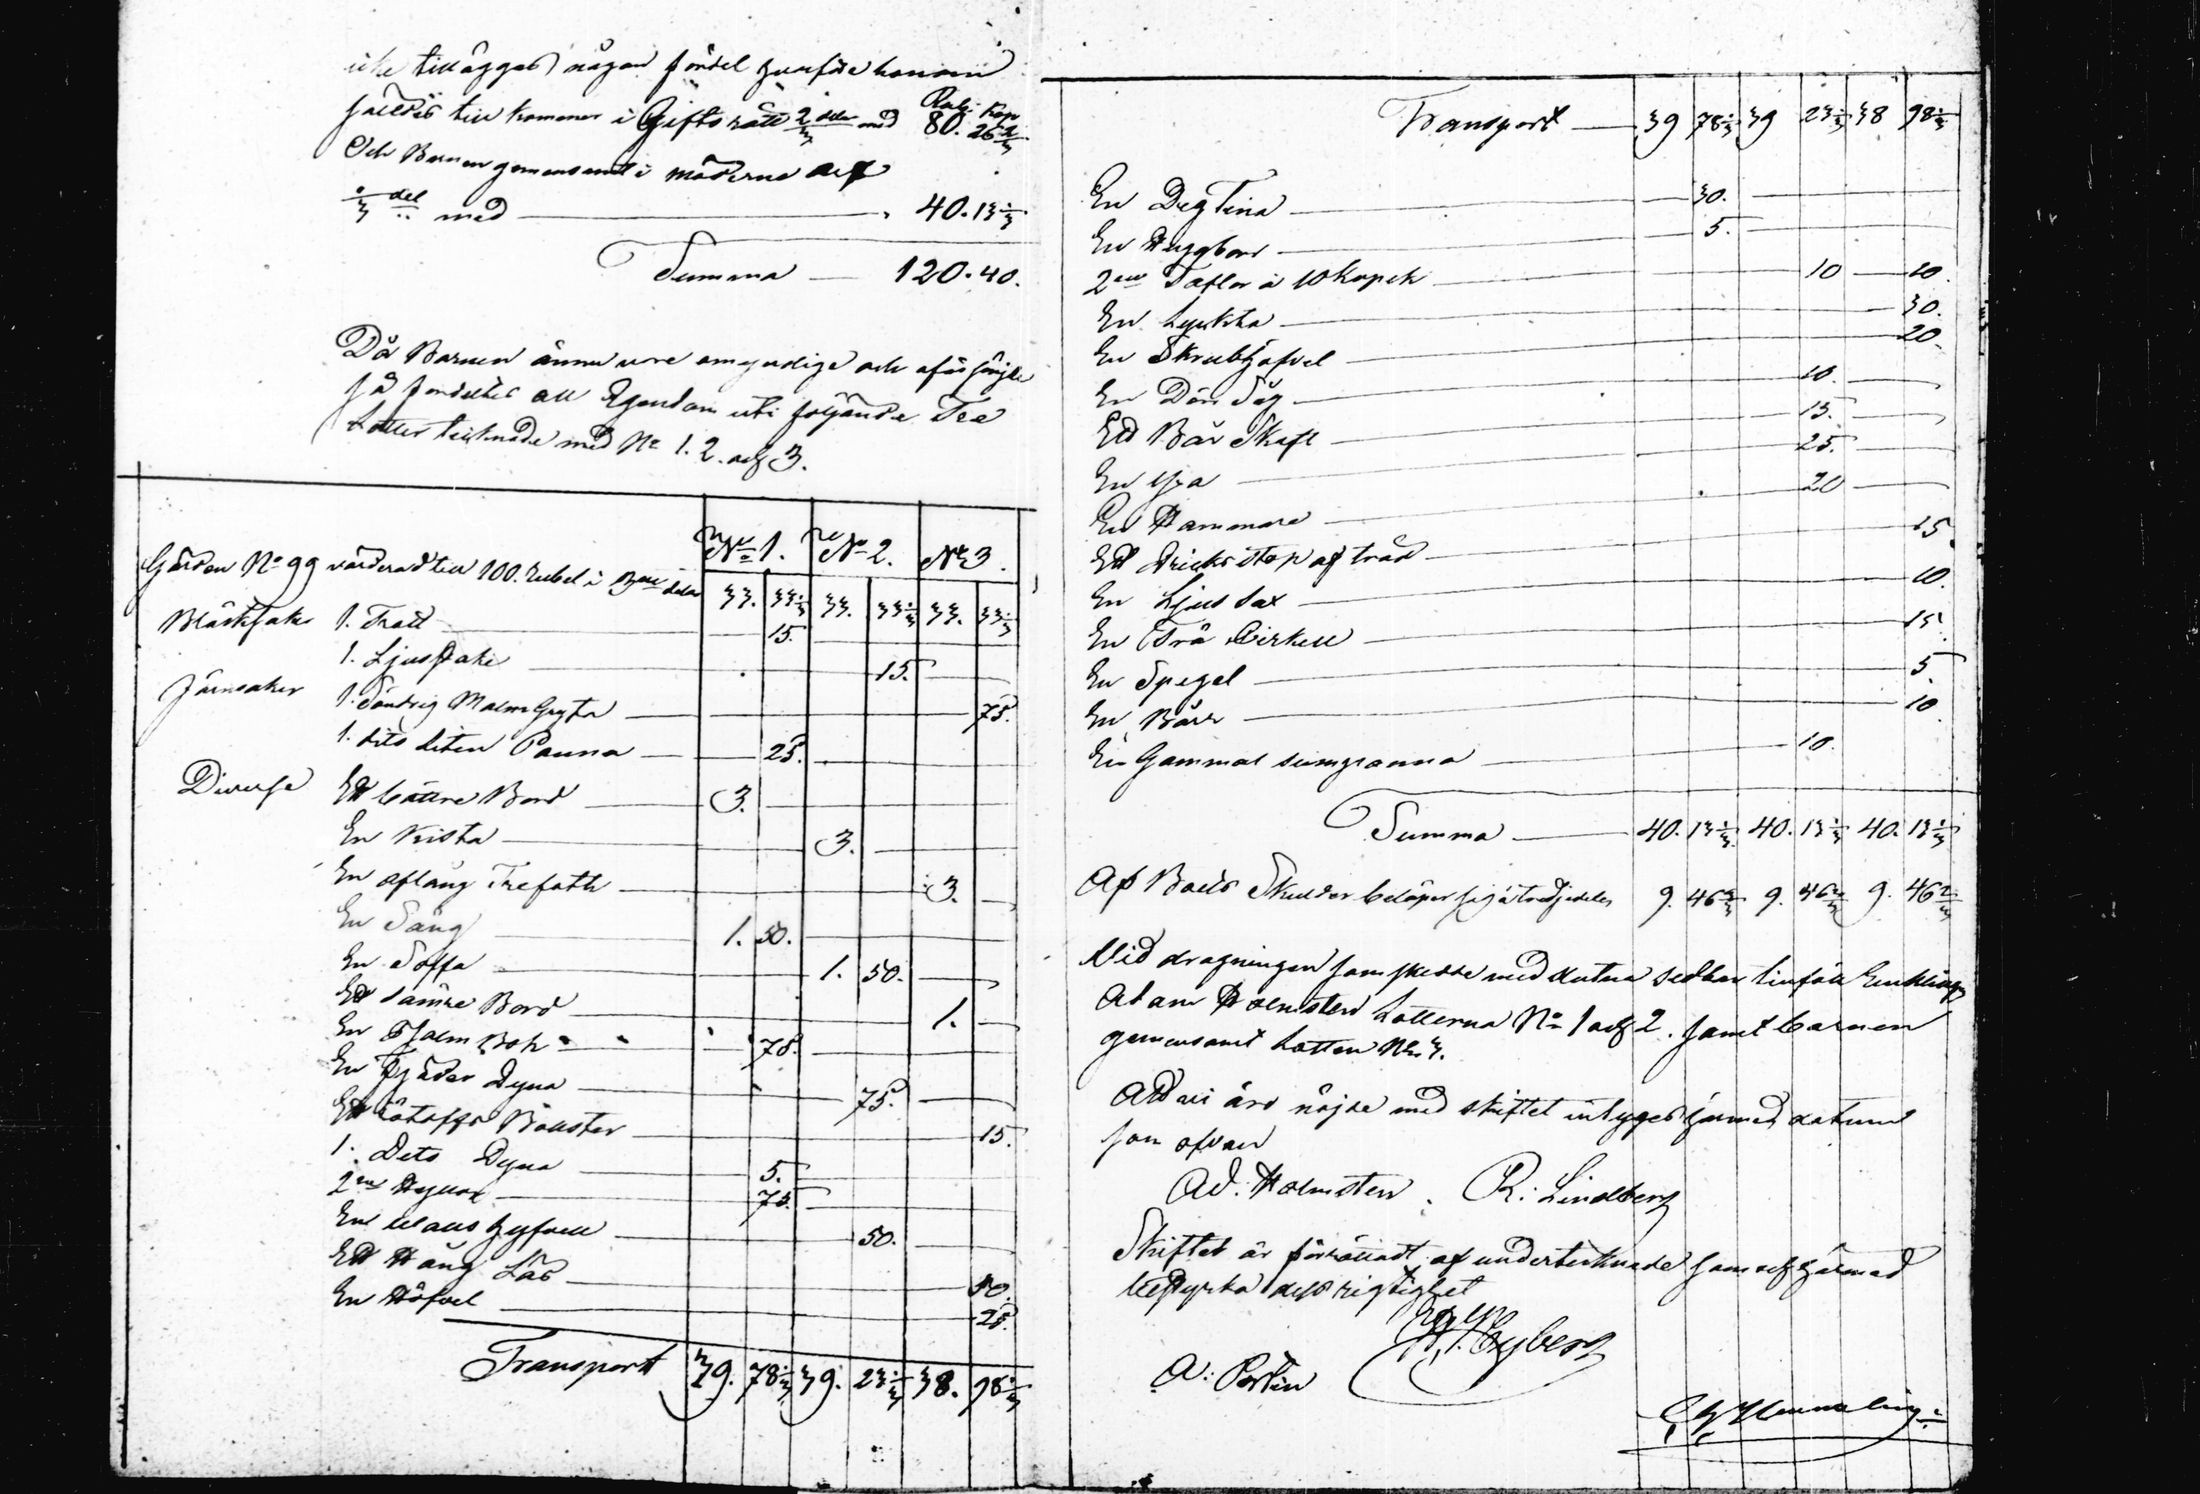 icke tillägges någon fördel hvarföre honom
således tillkommer i Giftorätt 2/3 delar med Rub: Kop 80. 26 2/3
Och Barnen gemensamt i möderne arf
1/3 del med 40. 13 1/3
Summa 120. 40.
Då Barnen ännu voro omyndige och oförsörjde
så fördeltes all Egendom uti följande Tre
Lotter tecknade med No 1. 2. och 3.
No 1. No 2. No 3.
Gården No 99 värderad till 100. Rubel i 3ne delar 33. 33 1/3 33. 33 1/3 33. 33 1/3
Bläcksaker 1. Tratt 15.
1. Ljusstake 15.
Järnsaker 1. Söndrig Malm Gryta 75.
1. dito liten Panna 25.
Diverse Ett bättre Bord 3.
En Kista 3.
En aflång Trefoth 3.
En Säng 1. 50.
En Soffa 1. 50.
Ett sämre Bord 1.
En Psalm Bok 75.
En Fjäder Dyna 75.
Ett Bolster 15.
1. Dito Dyna 5.
2ne 75.
En hyfvell 50.
Ett Häng Lås 50.
En Höfvel 25.
Transport 39. 78 1/3 39. 23 1/3 38. 98 1/3
Transport 39 78 1/3 39 23 1/3 38 98 1/3
En Deg Tina 30.
En 5.
2ne Taflor à 10 Kopek 10 10.
En Lyckta 30.
En Skrubbhöfvel 20.
En Såg 10.
Ett Bår Skaft 15.
En Yxa 25.
En Hammare 20
Ett Dricks stop af träd 15.
En Ljus Sax 10.
En Trä Cirkell 15.
En Spegel 5.
En Bårr 10.
En Gammal 10.
Summa 40. 13 1/3 40. 13 1/3 40. 13 1/3
Af Boets Skulder belöper sig à tredjedelen 9. 46 2/3 9. 46 2/3 9. 46 2/3
Vid dragningen som skedde med slutna sedlar tillföll Enklingen
Adam Holmsten Lotterna No 1 och 2. samt barnen
gemensamt Lotten No 3.
Att vi äro nöjde med skiftet intyges härmed datum
som ofvan
Ad: Holmsten. R: Lindberg
Skiftet är förrättadt af undertecknade som och härmed
bestyrka dess rigtighet
A: Portin